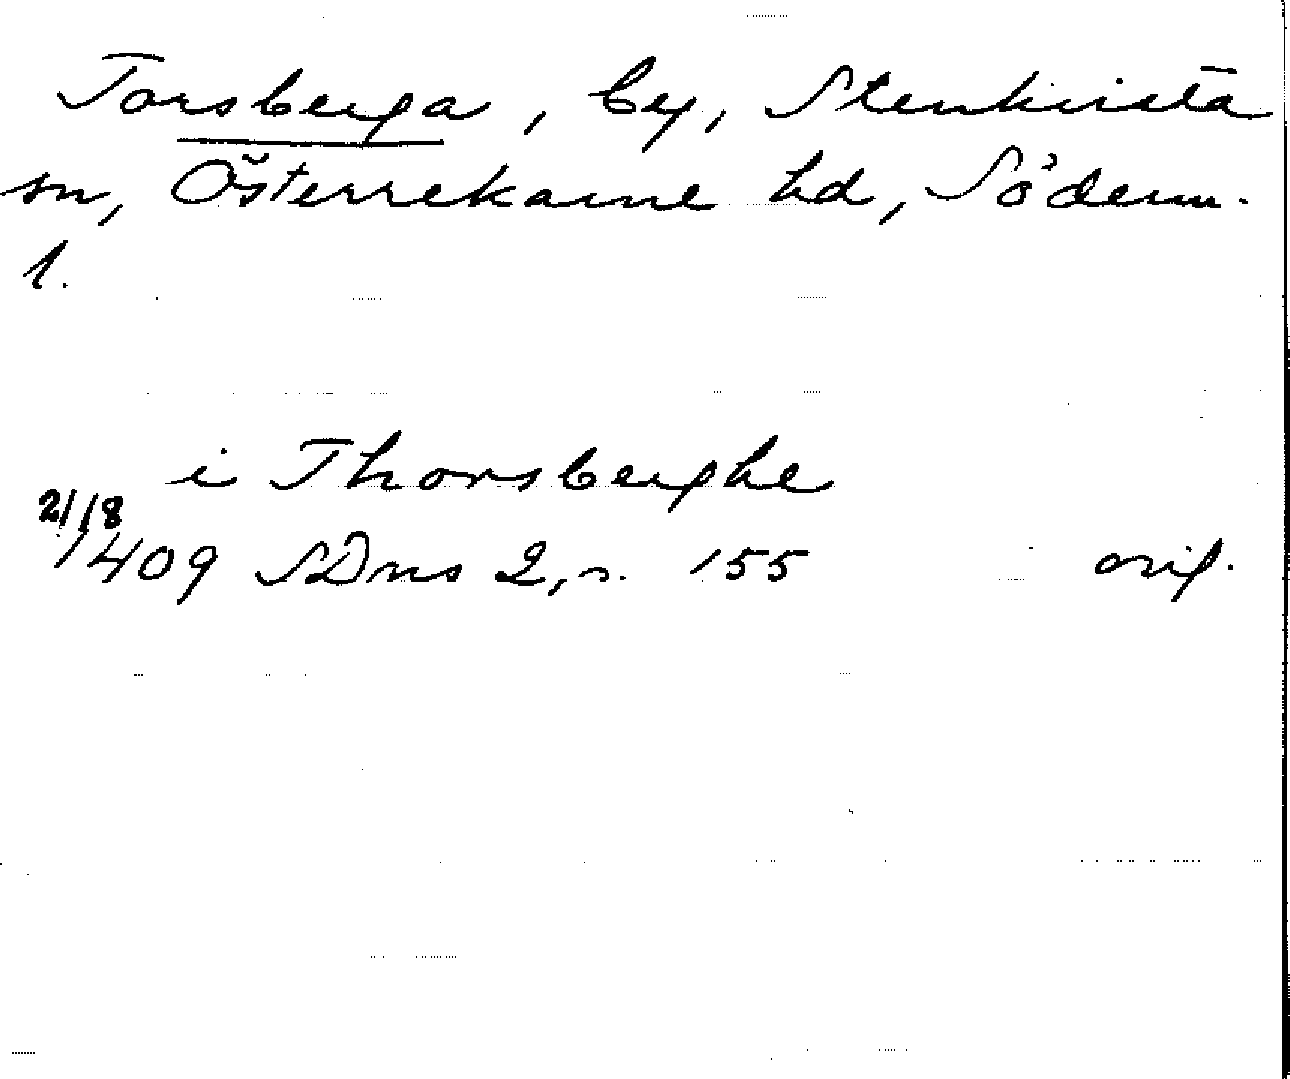 Torsberga, by, Stenkvista
sn, Österrekarne hd, Söderm.
l.
i Thorsberghe
21/18
1409 SDns 2, s. 155 orig.